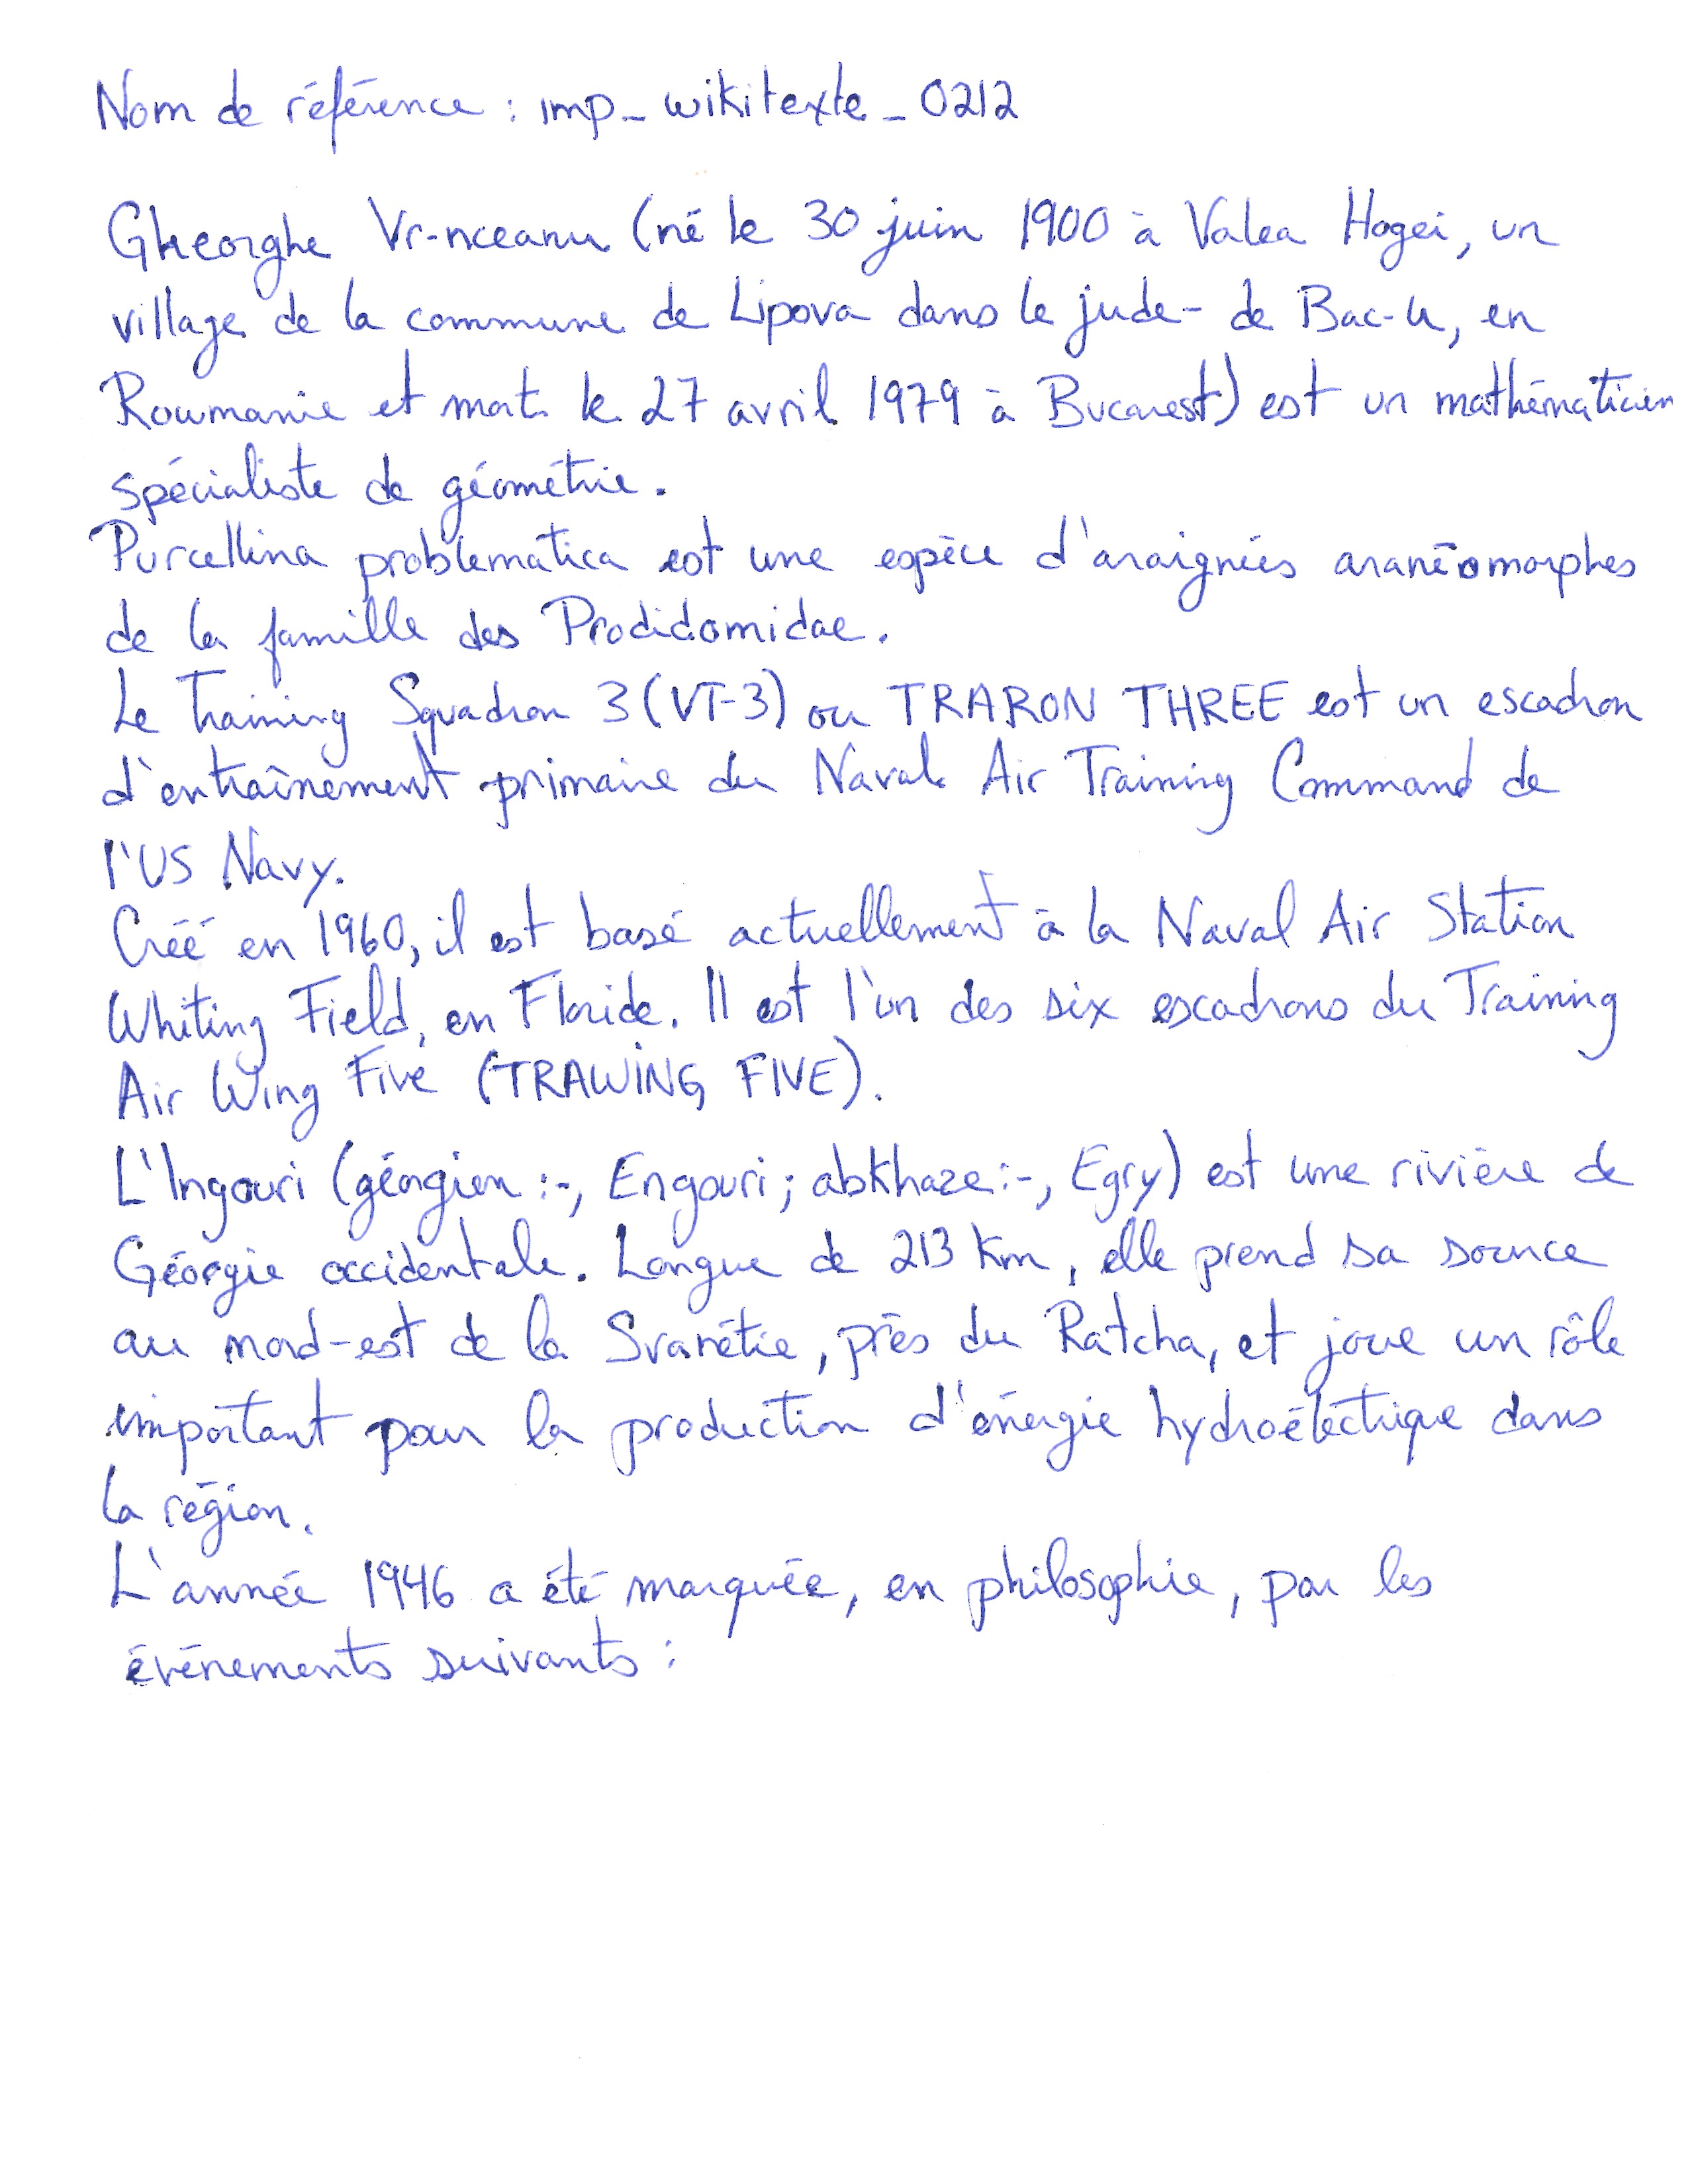 Nom de référence : imp_wikitexte_0212
Gheorghe Vr-nceanu (né le 30 juin 1900 à Valea Hogei, un
village de la commune de Lipova dans le jude- de Bac-u, en
Roumanie et mort le 27 avril 1979 à Bucarest) est un mathématicien
spécialiste de géométrie.
Purcellina problematica est une espèce d'araignées aranéomorphes
de la famille des Prodidomidae.
Le Training Squadron 3 (VT-3) ou TRARON THREE est un escadron
d'entraînement primaire du Naval Air Training Command de
l'US Navy.
Créé en 1960, il est basé actuellement à la Naval Air Station
Whiting Field, en Floride. Il est l'un des six escadrons du Training
Air Wing Five (TRAWING FIVE).
L'Ingouri (géorgien :-, Engouri ; abkhaze :-, Egry) est une rivière de
Géorgie occidentale. Longue de 213 km, elle prend sa source
au nord-est de la Svanétie, près du Ratcha, et joue un rôle
important pour la production d'énergie hydroélectrique dans
la région.
L'année 1946 a été marquée, en philosophie, par les
événements suivants :